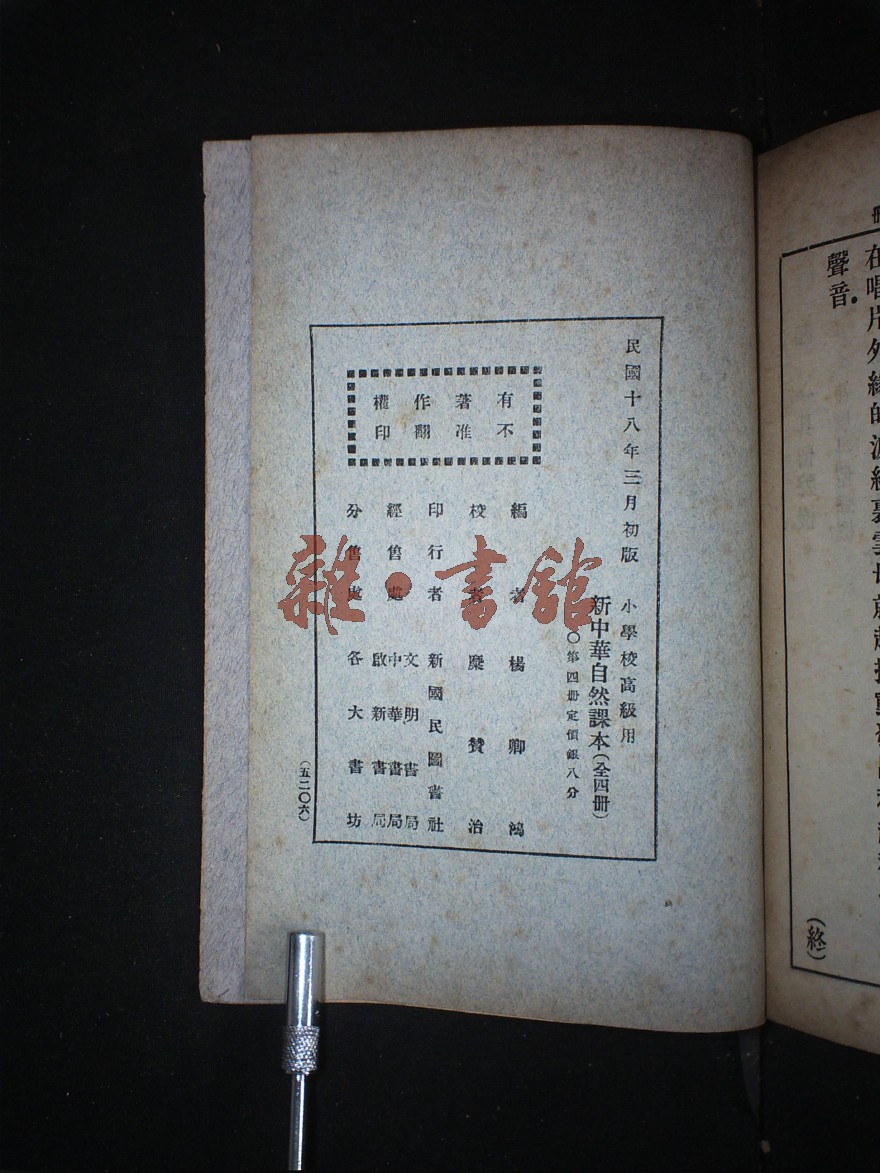 民國十八年三月初版
小學校高級用
新中華自然課本(全四冊)
第四冊定價銀八分
有著作權
不准翻印
編著 楊卿鴻
校者 糜贊治
印行者 新國民圖書社
經售處 文明書局
中華書局
啟新書局
分售處 各大書坊
(五二〇六)
聲音.
(終)
雜·書館